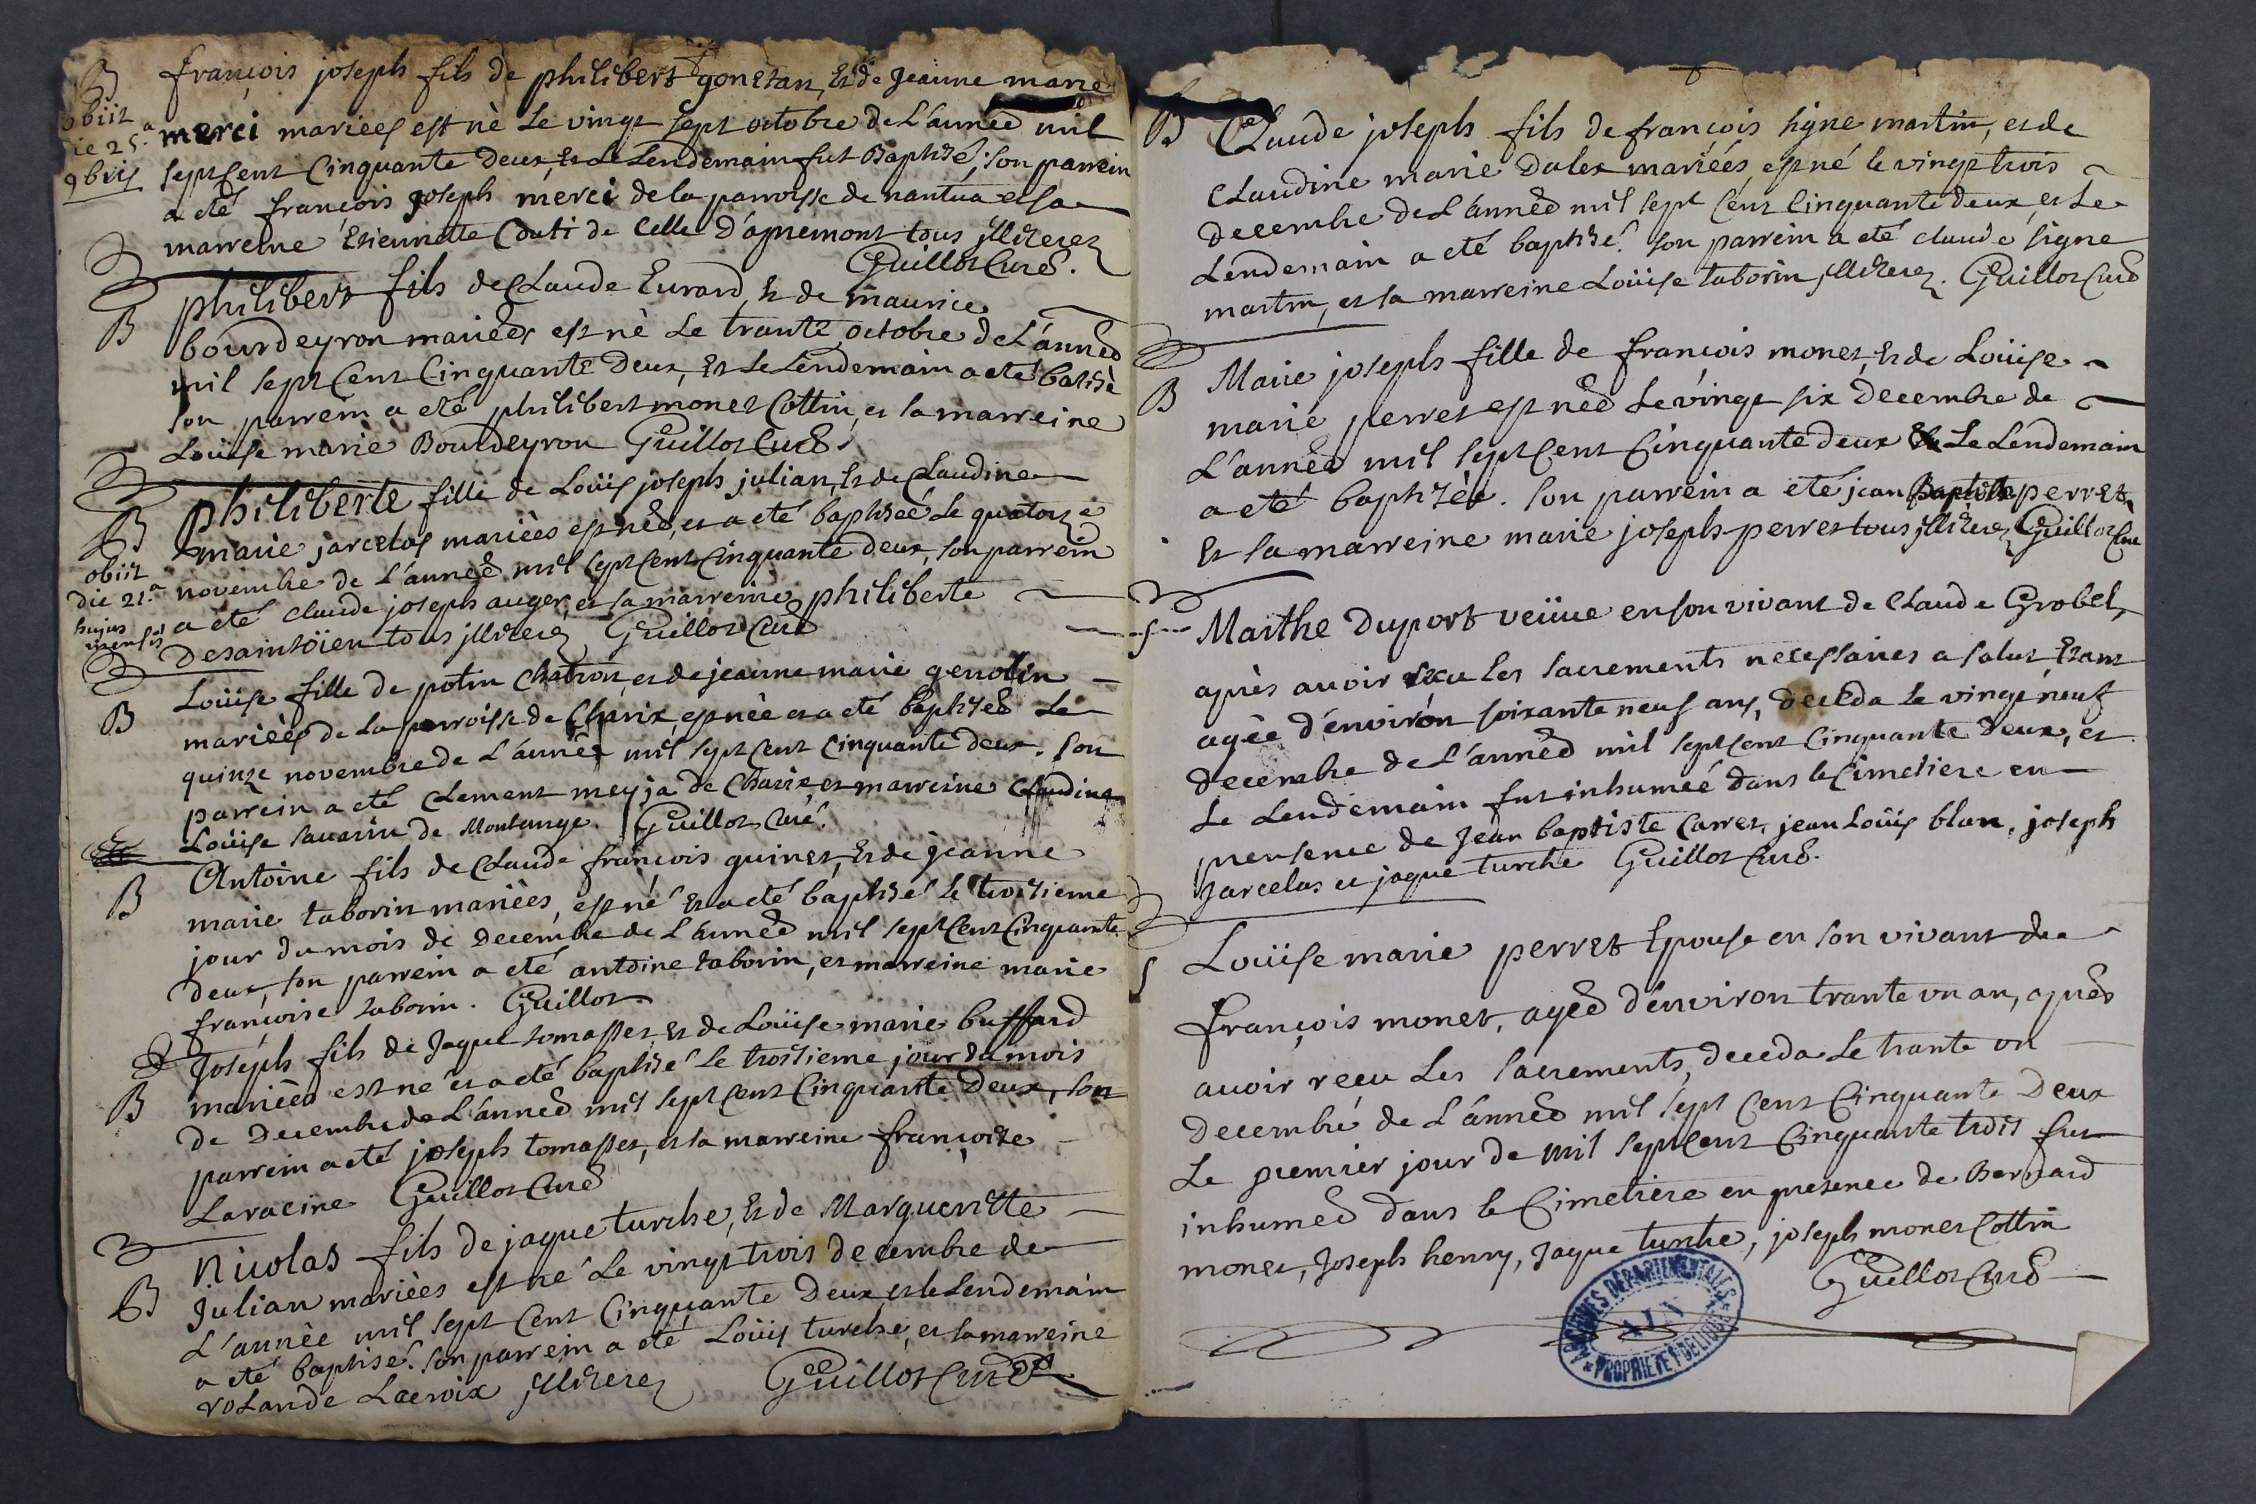 B françois joseph fils de philibert gonetan, et de Jeanne marie
obiit
die 25.a
9bris
merci mariees est nè Le vingt sept octobre de L'année mil
sept cent Cinquante deux, et Le Lendemain fut Baptisé; son parrein
a eté françois joseph merci de la parroisse de nantua et sa
marreine Etiennette Couti de Celle d'apremont tous illiterez
Guillot Curé.
B philibert fils de Claude Evrard, et de maurice
bourdeyron mariées est nè Le trante octobre de L'année
mil sept Cent Cinquante Deux, Et Le Lendemain a eté batisè
son parrein a eté philibert monet Cottin, et la marreine
Loüise marie Bourdeyron Guillot Curé
B philiberte fille de Loüis joseph julian, et de Claudine
obiit
die 21.a
hujus
mensis
marie jarcelas mariées est née, et a eté baptisée Le quatorze
novembre de L'année mil sept cent Cinquante deux, son parrein
a eté claude joseph auger, et sa marreine philiberte
Desaintoien tous illiterez Guillot Curé
B Loüise fille de potin Chatron, et de jeanne marie genolin
mariées de La parroisse de Charix est née et a eté baptisée Le
quinze novembre de L'année mil sept cent cinquante deux. son
parrein a eté clement meyja de Charix et marreine Claudine
Loüise sauarin de Montange. Guillot Curé.
B Antoine fils de Claude françois quinet, et de jeanne
marie taborin mariées, est né et a eté baptisé le troisieme
jour du mois de decembre de L'année mil sept Cent Cinquante
deux, son parrein a eté antoine taborin, et marreine marie
françoise taborin. Guillot
B Joseph fils de Jaque tomasset, et de Loüise marie buffard
mariées est né et a eté baptisé le troisieme jour du mois
de decembre de L'année mil sept cent Cinquante Deux, son
parrein a eté joseph tomasset, et sa marreine françoise
Laracine Guillot Curé
B Nicolas fils de jaque turche, et de Marguerite
Julian mariées est né Le vingt trois decembre de
L'année mil sept Cent Cinquante Deux, et le Lendemain
a eté baptisé. son parrein a eté Loüis turche, et sa marreine
roLande Lacroix illiterez Guillot Curé
B Claude joseph fils de françois signe martin, et de
claudine marie Dalex mariéés, est né le vingt trois
decembre de L'année mil sept Cent Cinquante deux, et Le
Lendemain a eté baptisé. son parrein a eté claude signe
martin, et sa marreine Loüise taborin illiterez. Guillot Curé
B Marie joseph fille de françois monet, et de Loüise
marie perret est née Le vingt six decembre de
L'année mil sept Cent Cinquante deux Le Lendemain
a eté baptisèe. son parrein a eté jean Baptiste perret,
Et sa marreine marie joseph perret tous illiterez Guillot Cure
S Marthe Duport veüue en son vivant de Claude Grobel,
après avoir recu Les sacrements necessaires a salut Etant
agée d'environ soixante neuf ans, deceda Le vingt neuf
decembre de L'année mil sept cent Cinquante deux, et
Le Lendemain fut inhumée dans le Cimetiere en
presence de Jean baptiste Carret, jean Loüis blan, joseph
Jarcelas et jaque turche Guillot Curé.
S Loüise marie perret Epouse en son vivant de
françois monet, agée d'environ trante un an, après
avoir reçu Les sacrements, deceda Le trante un
decembre de L'année mil sept Cent Cinquante Deux
Le premier jour de mil sept cent Cinquante trois fut
inhumée dans le Cimetiere en presence de Bernard
monet, Joseph henry, Jaque turche, joseph monet Cottin
Guillot Curé
ARCHIVES DÉPARTEMENTALES
AIN
PROPRIETE PUBLIQUE